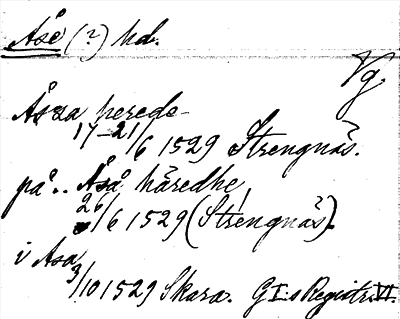 Åse (?) hd.
Vg.
Åssa herede
17-21/6 1529 Strengnäs.
på.. Åså häredhe
26/6 1529 (Strengnäs).
i Asa
3/10 1529 Skara. GI:s Registr. VI.